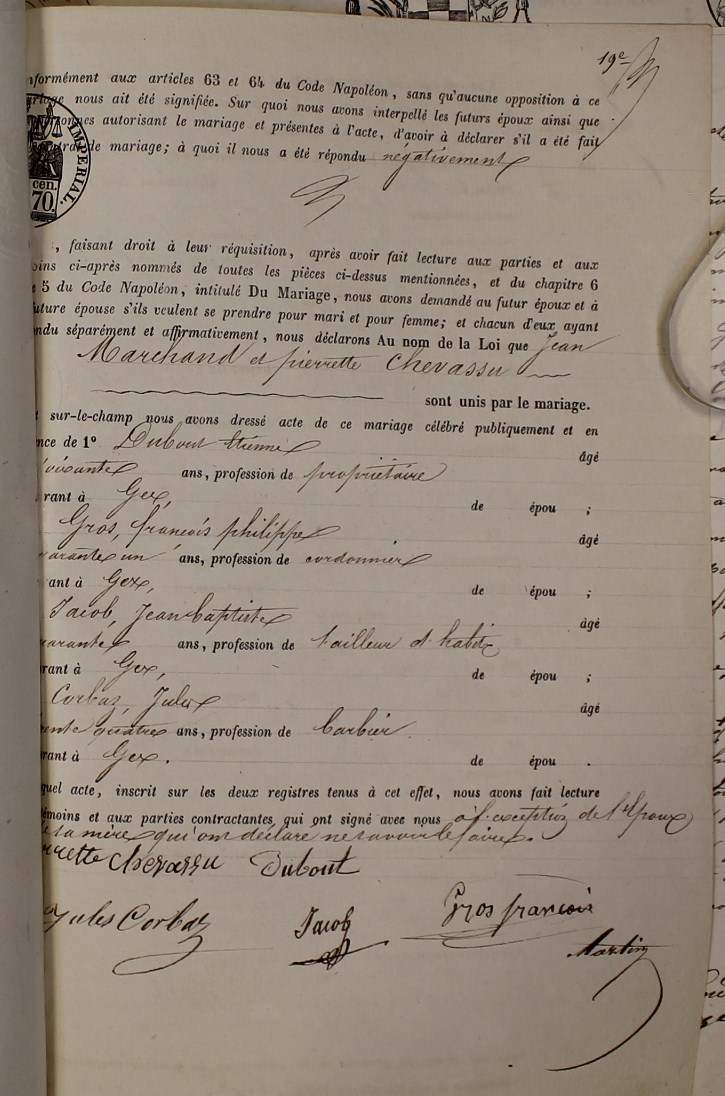 19e
nformément aux articles 63 et 64 du Code Napoléon, sans qu'aucune opposition à ce
ariage nous ait été signifiée. Sur quoi nous avons interpellé les futurs époux ainsi que
personnes autorisant le mariage et présentes à l'acte, d'avoir à déclarer s'il a été fait
contrat de mariage; à quoi il nous a été répondu négativement
IMPERIAL.
cen.
70.
, faisant droit à leur réquisition, après avoir fait lecture aux parties et aux
oins ci-après nommés de toutes les pièces ci-dessus mentionnées, et du chapitre 6
e 5 du Code Napoléon, intitulé Du Mariage, nous avons demandé au futur époux et à
uture épouse s'ils veulent se prendre pour mari et pour femme; et chacun d'eux ayant
ondu séparément et affirmativement, nous déclarons Au nom de la Loi que Jean
Marchand et pierrette Chevassu
sont unis par le mariage.
t sur-le-champ nous avons dressé acte de ce mariage célébré publiquement et en
nce de 1o Dubout Etienne âgé
oixante ans, profession de propriétaire
rant à Gex, de épou ;
Gros, françois philippe âgé
uarante un ans, profession de cordonnier
rant à Gex, de épou ;
Jacob, Jean baptiste âgé
uarante ans, profession de tailleur d'habits
rant à Gex, de épou ;
Corbaz, Jules âgé
rente quatre ans, profession de barbier.
rant à Gex. de épou .
quel acte, inscrit sur les deux registres tenus à cet effet, nous avons fait lecture
témoins et aux parties contractantes qui ont signé avec nous à l'exception de l'Epoux
de sa mère qui ont déclaré ne savoir le faire.
rrette Chevassu Dubout
Jules Corbaz Jacob Gros françois
Martin